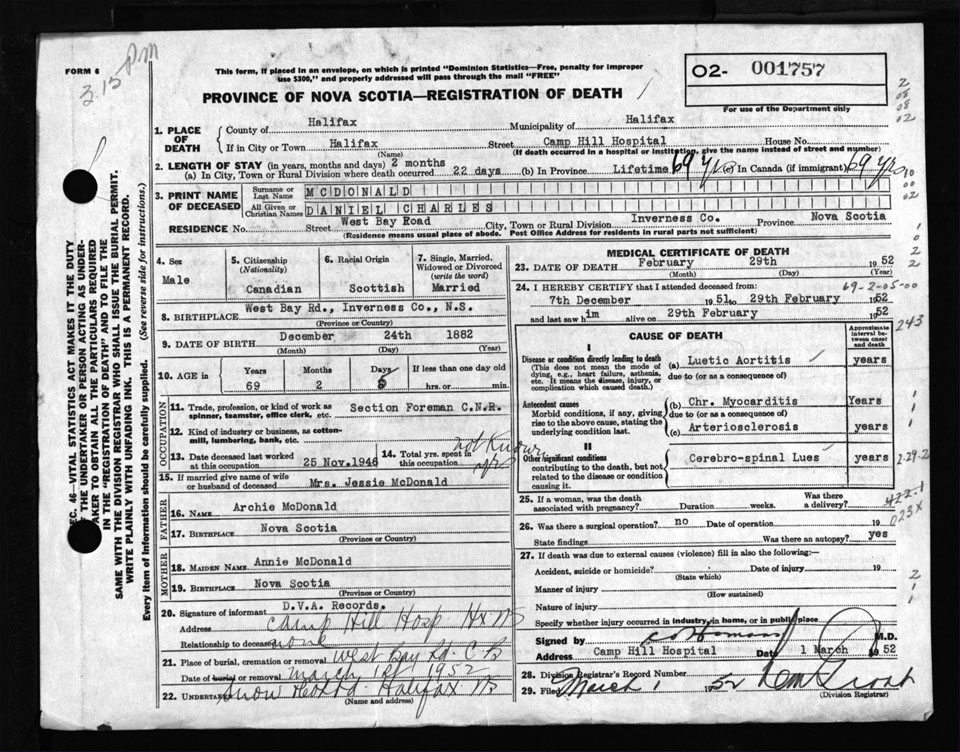 3.15 PM
FORM 6
This form, if placed in an envelope, on which is printed "Dominion Statistics—Free, penalty for improper
use $300," and properly addressed will pass through the mail "FREE"
PROVINCE OF NOVA SCOTIA—REGISTRATION OF DEATH
02- 001757
For use of the Department only
1. PLACE OF DEATH
County of Halifax Municipality of Halifax
If in City or Town Halifax Street Camp Hill Hospital House No.
(Name) (If death occurred in a hospital or institution, give the name instead of street and number)
2. LENGTH OF STAY (in years, months and days) 2 months
(a) In City, Town or Rural Division where death occurred 22 days (b) In Province Lifetime 69 yrs (c) In Canada (if immigrant) 69 yrs
3. PRINT NAME OF DECEASED
Surname or Last Name MCDONALD
All Given or Christian Names DANIEL CHARLES
RESIDENCE No. Street West Bay Road City, Town or Rural Division Inverness Co. Province Nova Scotia
(Residence means usual place of abode. Post Office Address for residents in rural parts not sufficient)
4. Sex
Male
5. Citizenship
(Nationality)
Canadian
6. Racial Origin
Scottish
7. Single, Married,
Widowed or Divorced
(write the word)
Married
8. BIRTHPLACE West Bay Rd., Inverness Co., N.S.
(Province or Country)
9. DATE OF BIRTH December 24th 1882
(Month) (Day) (Year)
10. AGE in Years Months Days If less than one day old
69 2 5 hrs. or min.
OCCUPATION
11. Trade, profession, or kind of work as
spinner, teamster, office clerk, etc. Section Foreman C.N.R.
12. Kind of industry or business, as cotton-
mill, lumbering, bank, etc.
13. Date deceased last worked
at this occupation 25 Nov. 1946
14. Total yrs. spent in
this occupation not known
15. If married give name of wife
or husband of deceased Mrs. Jessie McDonald
FATHER
16. NAME Archie McDonald
17. BIRTHPLACE Nova Scotia
(Province or Country)
MOTHER
18. MAIDEN NAME Annie McDonald
19. BIRTHPLACE Nova Scotia
(Province or Country)
20. Signature of informant D.V.A. Records.
Address Camp Hill Hosp Hx NS
Relationship to deceased none
21. Place of burial, cremation or removal West Bay Rd. C B
Date of burial or removal March 1st 1952
22. UNDERTAKER Snow Halifax NS
(Name and address)
MEDICAL CERTIFICATE OF DEATH
23. DATE OF DEATH February 29th 1952
(Month) (Day) (Year)
24. I HEREBY CERTIFY that I attended deceased from: 69-2-05-00
7th December 1951 to 29th February 1952
and last saw him alive on 29th February 1952
CAUSE OF DEATH
Approximate
interval be-
tween onset
and death
243
I
Disease or condition directly leading to death
(This does not mean the mode of
dying, e.g., heart failure, asthenia,
etc. It means the disease, injury, or
complication which caused death.)
(a) Luetic Aortitis years
due to (or as a consequence of)
Antecedent causes
Morbid conditions, if any, giving
rise to the above cause, stating the
underlying condition last.
(b) Chr. Myocarditis Years
due to (or as a consequence of)
(c) Arteriosclerosis years
II
Other significant conditions
contributing to the death, but not
related to the disease or condition
causing it.
Cerebro-spinal Lues years
2-29-2
25. If a woman, was the death
associated with pregnancy? Duration weeks. Was there
a delivery?
422.1
023X
26. Was there a surgical operation? no Date of operation 19
State findings Was there an autopsy? yes
27. If death was due to external causes (violence) fill in also the following:
Accident, suicide or homicide? Date of injury 19
(State which)
Manner of injury
(How sustained)
Nature of injury
Specify whether injury occurred in industry, in home, or in public place
Signed by M.D.
Address Camp Hill Hospital Date 1 March 1952
28. Division Registrar's Record Number
29. Filed March 1 1952
(Division Registrar)
SEC. 46—VITAL STATISTICS ACT MAKES IT THE DUTY
OF THE UNDERTAKER OR PERSON ACTING AS UNDER-
TAKER TO OBTAIN ALL THE PARTICULARS REQUIRED
IN THE "REGISTRATION OF DEATH" AND TO FILE THE
SAME WITH THE DIVISION REGISTRAR WHO SHALL ISSUE THE BURIAL PERMIT.
WRITE PLAINLY WITH UNFADING INK. THIS IS A PERMANENT RECORD.
Every item of Information should be carefully supplied. (See reverse side for instructions.)